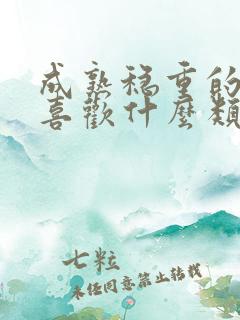 成熟穩重的
喜歡什麼類
七粒
未经同意禁止转载